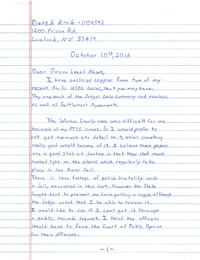 Derek Kirk - 1104593
1200 Prison Rd.
Lovelock, N.V. 89419
October 30th, 2016
Dear Prison Legal News,
I have enclosed copies from two of my
recent Pro Se USDC cases, that you may have.
They are each of the Judges Case Summary and reviews,
as well as Settlement Agreements.
The Washoe County case was difficult for me
because of my PTSD issues. So I would prefer to
not get too much into detail on it, unless something
really good would become of it. I believe these papers
are a good step at Justice in that they shed much
needed light on the abuses which regularly take
place in the Reno Jail.
There is video footage of police brutality inside
a Jail, uncovered in this suit. However the State
fought hard to prevent me from getting a copy, although
the Judge order that I be able to review it.
I would like to see if I can't get it through
a public records request. I think the officers
should have to face the Court of Public Opinion
for their offenses.
- 1 -